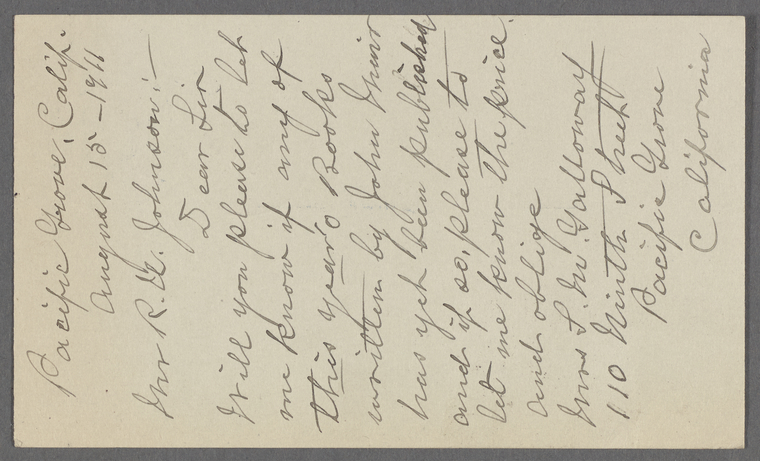 Pacific Grove, Calif.
August 15 - 1911
Mr R. U. Johnson:—
Dear Sir
Will you please to let
me know if any of
this years Books
written by John Muir
has yet been published
and if so, please to
let me know the price.
and oblige
Mrs L. M. Galloway
110 Ninth Street
Pacific Grove
California